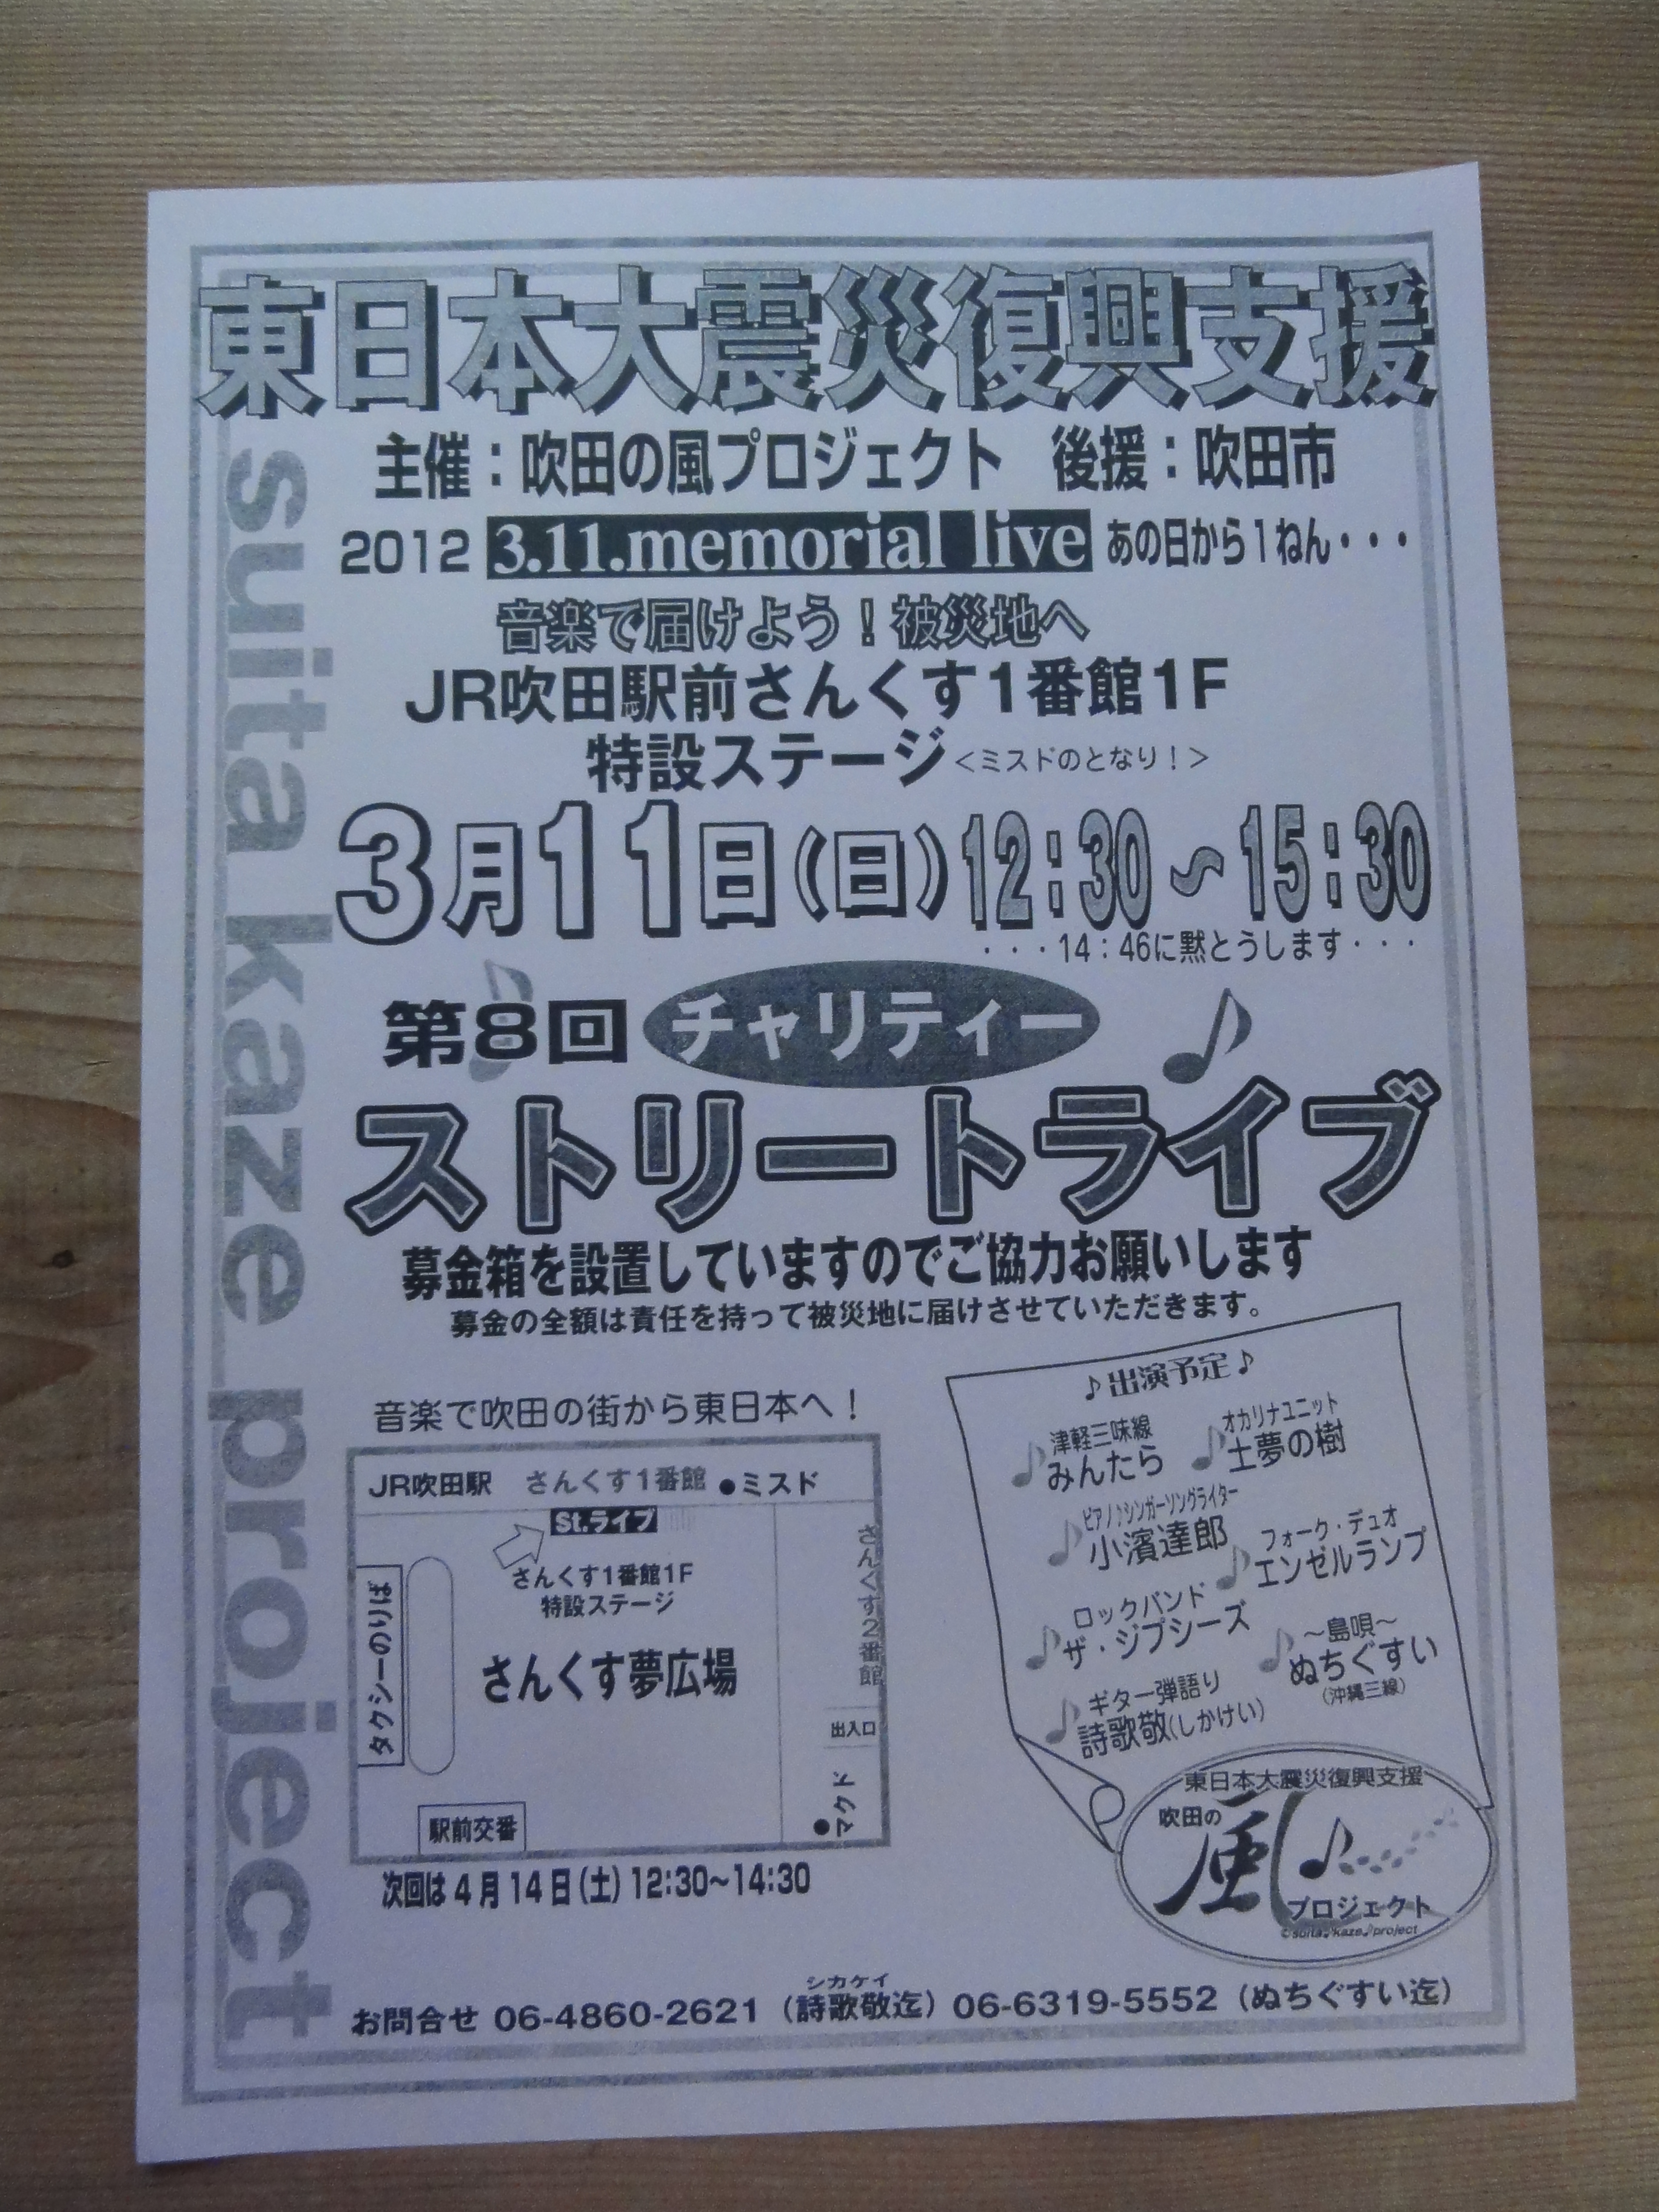 東日本大震災復興支援
主催：吹田の風プロジェクト 後援：吹田市
2012 3.11.memorial live あの日から1ねん・・・
音楽で届けよう！被災地へ
JR吹田駅前さんくす1番館1F
特設ステージ＜ミスドのとなり！＞
3月11日（日）12：30～15：30
・・・14：46に黙とうします・・・
第8回 チャリティー
ストリートライブ
募金箱を設置していますのでご協力お願いします
募金の全額は責任を持って被災地に届けさせていただきます。
suita kaze project
音楽で吹田の街から東日本へ！
JR吹田駅 さんくす1番館 ●ミスド
St.ライブ
さんくす1番館1F
特設ステージ
さんくす夢広場
タクシーのりば
さんくす2番館
出入口
●マクド
駅前交番
次回は4月14日（土）12:30～14:30
♪出演予定♪
津軽三味線
みんたら
オカリナユニット
土夢の樹
ピアノ♪シンガーソングライター
小濱達郎
フォーク・デュオ
エンゼルランプ
ロックバンド
ザ・ジプシーズ
～島唄～
ぬちぐすい
（沖縄三線）
ギター弾語り
詩歌敬（しかけい）
東日本大震災復興支援
吹田の
風
プロジェクト
©suita♪kaze♪project
シカケイ
お問合せ 06-4860-2621（詩歌敬迄）06-6319-5552（ぬちぐすい迄）